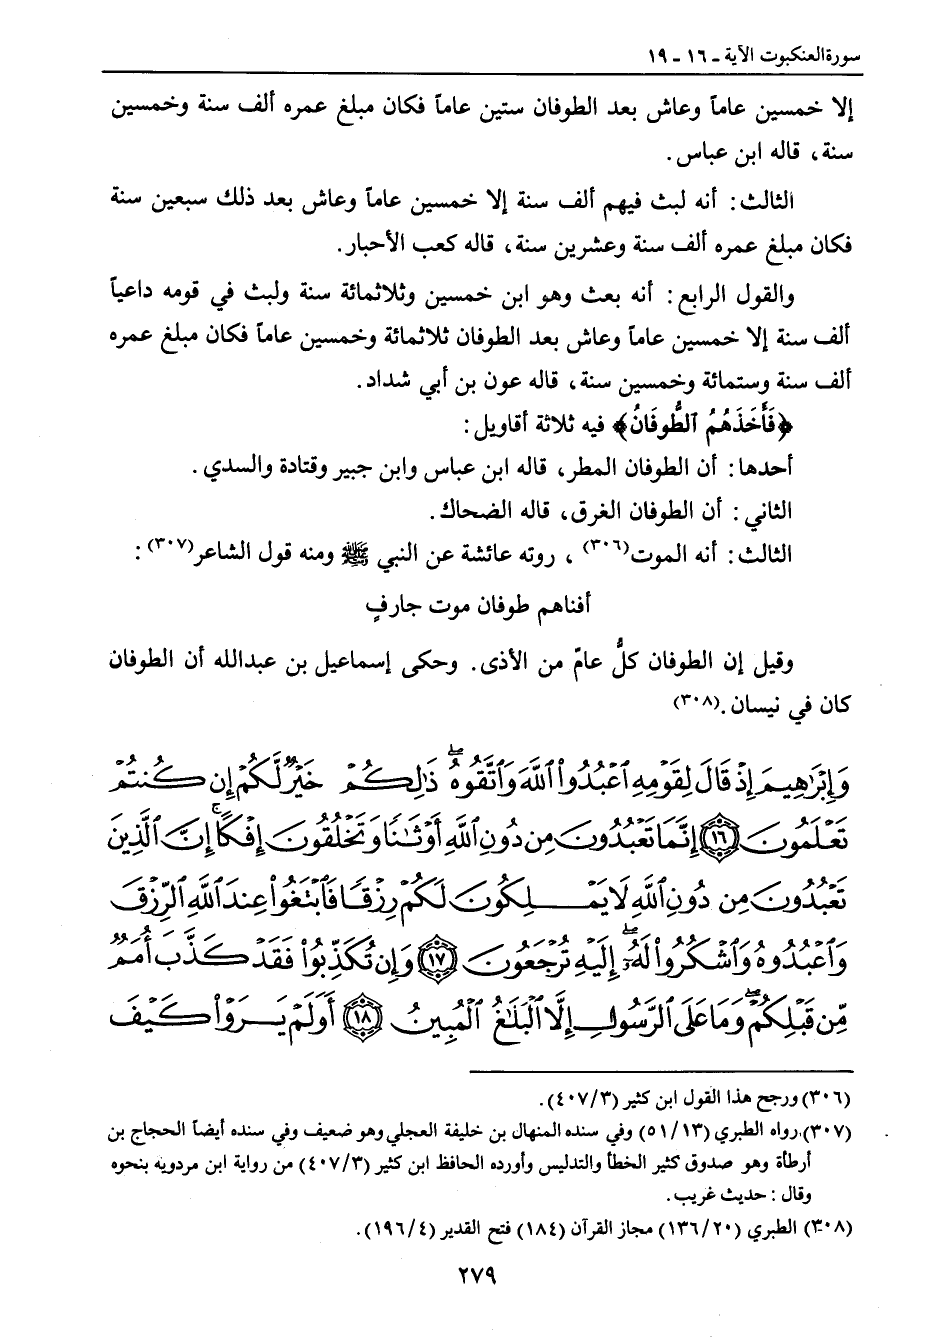 سورة العنكبوت الآية ـ ١٦ ـ ١٩
إلا خمسين عاماً وعاش بعد الطوفان ستين عاماً فكان مبلغ عمره ألف سنة وخمسين
سنة، قاله ابن عباس.
الثالث: أنه لبث فيهم ألف سنة إلا خمسين عاماً وعاش بعد ذلك سبعين سنة
فكان مبلغ عمره ألف سنة وعشرين سنة، قاله كعب الأحبار.
والقول الرابع: أنه بعث وهو ابن خمسين وثلاثمائة سنة ولبث في قومه داعياً
ألف سنة إلا خمسين عاماً وعاش بعد الطوفان ثلاثمائة وخمسين عاماً فكان مبلغ عمره
ألف سنة وستمائة وخمسين سنة، قاله عون بن أبي شداد.
﴿فَأَخَذَهُمُ ٱلطُّوفَانُ﴾ فيه ثلاثة أقاويل:
أحدها: أن الطوفان المطر، قاله ابن عباس وابن جبير وقتادة والسدي.
الثاني: أن الطوفان الغرق، قاله الضحاك.
الثالث: أنه الموت(٣٠٦)، روته عائشة عن النبي ﷺ ومنه قول الشاعر(٣٠٧):
أفناهم طوفان موت جارفٍ
وقيل إن الطوفان كلُّ عامّ من الأذى. وحكى إسماعيل بن عبدالله أن الطوفان
كان في نيسان.(٣٠٨)
وَإِبْرَٰهِيمَ إِذْ قَالَ لِقَوْمِهِ ٱعْبُدُواْ ٱللَّهَ وَٱتَّقُوهُ ۖ ذَٰلِكُمْ خَيْرٌ لَّكُمْ إِن كُنتُمْ
تَعْلَمُونَ ١٦ إِنَّمَا تَعْبُدُونَ مِن دُونِ ٱللَّهِ أَوْثَٰنًا وَتَخْلُقُونَ إِفْكًا ۚ إِنَّ ٱلَّذِينَ
تَعْبُدُونَ مِن دُونِ ٱللَّهِ لَا يَمْلِكُونَ لَكُمْ رِزْقًا فَٱبْتَغُواْ عِندَ ٱللَّهِ ٱلرِّزْقَ
وَٱعْبُدُوهُ وَٱشْكُرُواْ لَهُۥٓ ۖ إِلَيْهِ تُرْجَعُونَ ١٧ وَإِن تُكَذِّبُواْ فَقَدْ كَذَّبَ أُمَمٌ
مِّن قَبْلِكُمْ ۖ وَمَا عَلَى ٱلرَّسُولِ إِلَّا ٱلْبَلَٰغُ ٱلْمُبِينُ ١٨ أَوَلَمْ يَرَوْاْ كَيْفَ
(٣٠٦) ورجح هذا القول ابن كثير (٤٠٧/٣).
(٣٠٧) رواه الطبري (٥١/١٣) وفي سنده المنهال بن خليفة العجلي وهو ضعيف وفي سنده أيضاً الحجاج بن
أرطأة وهو صدوق كثير الخطأ والتدليس وأورده الحافظ ابن كثير (٤٠٧/٣) من رواية ابن مردويه بنحوه
وقال: حديث غريب.
(٣٠٨) الطبري (١٣٦/٢٠) مجاز القرآن (١٨٤) فتح القدير (١٩٦/٤).
٢٧٩